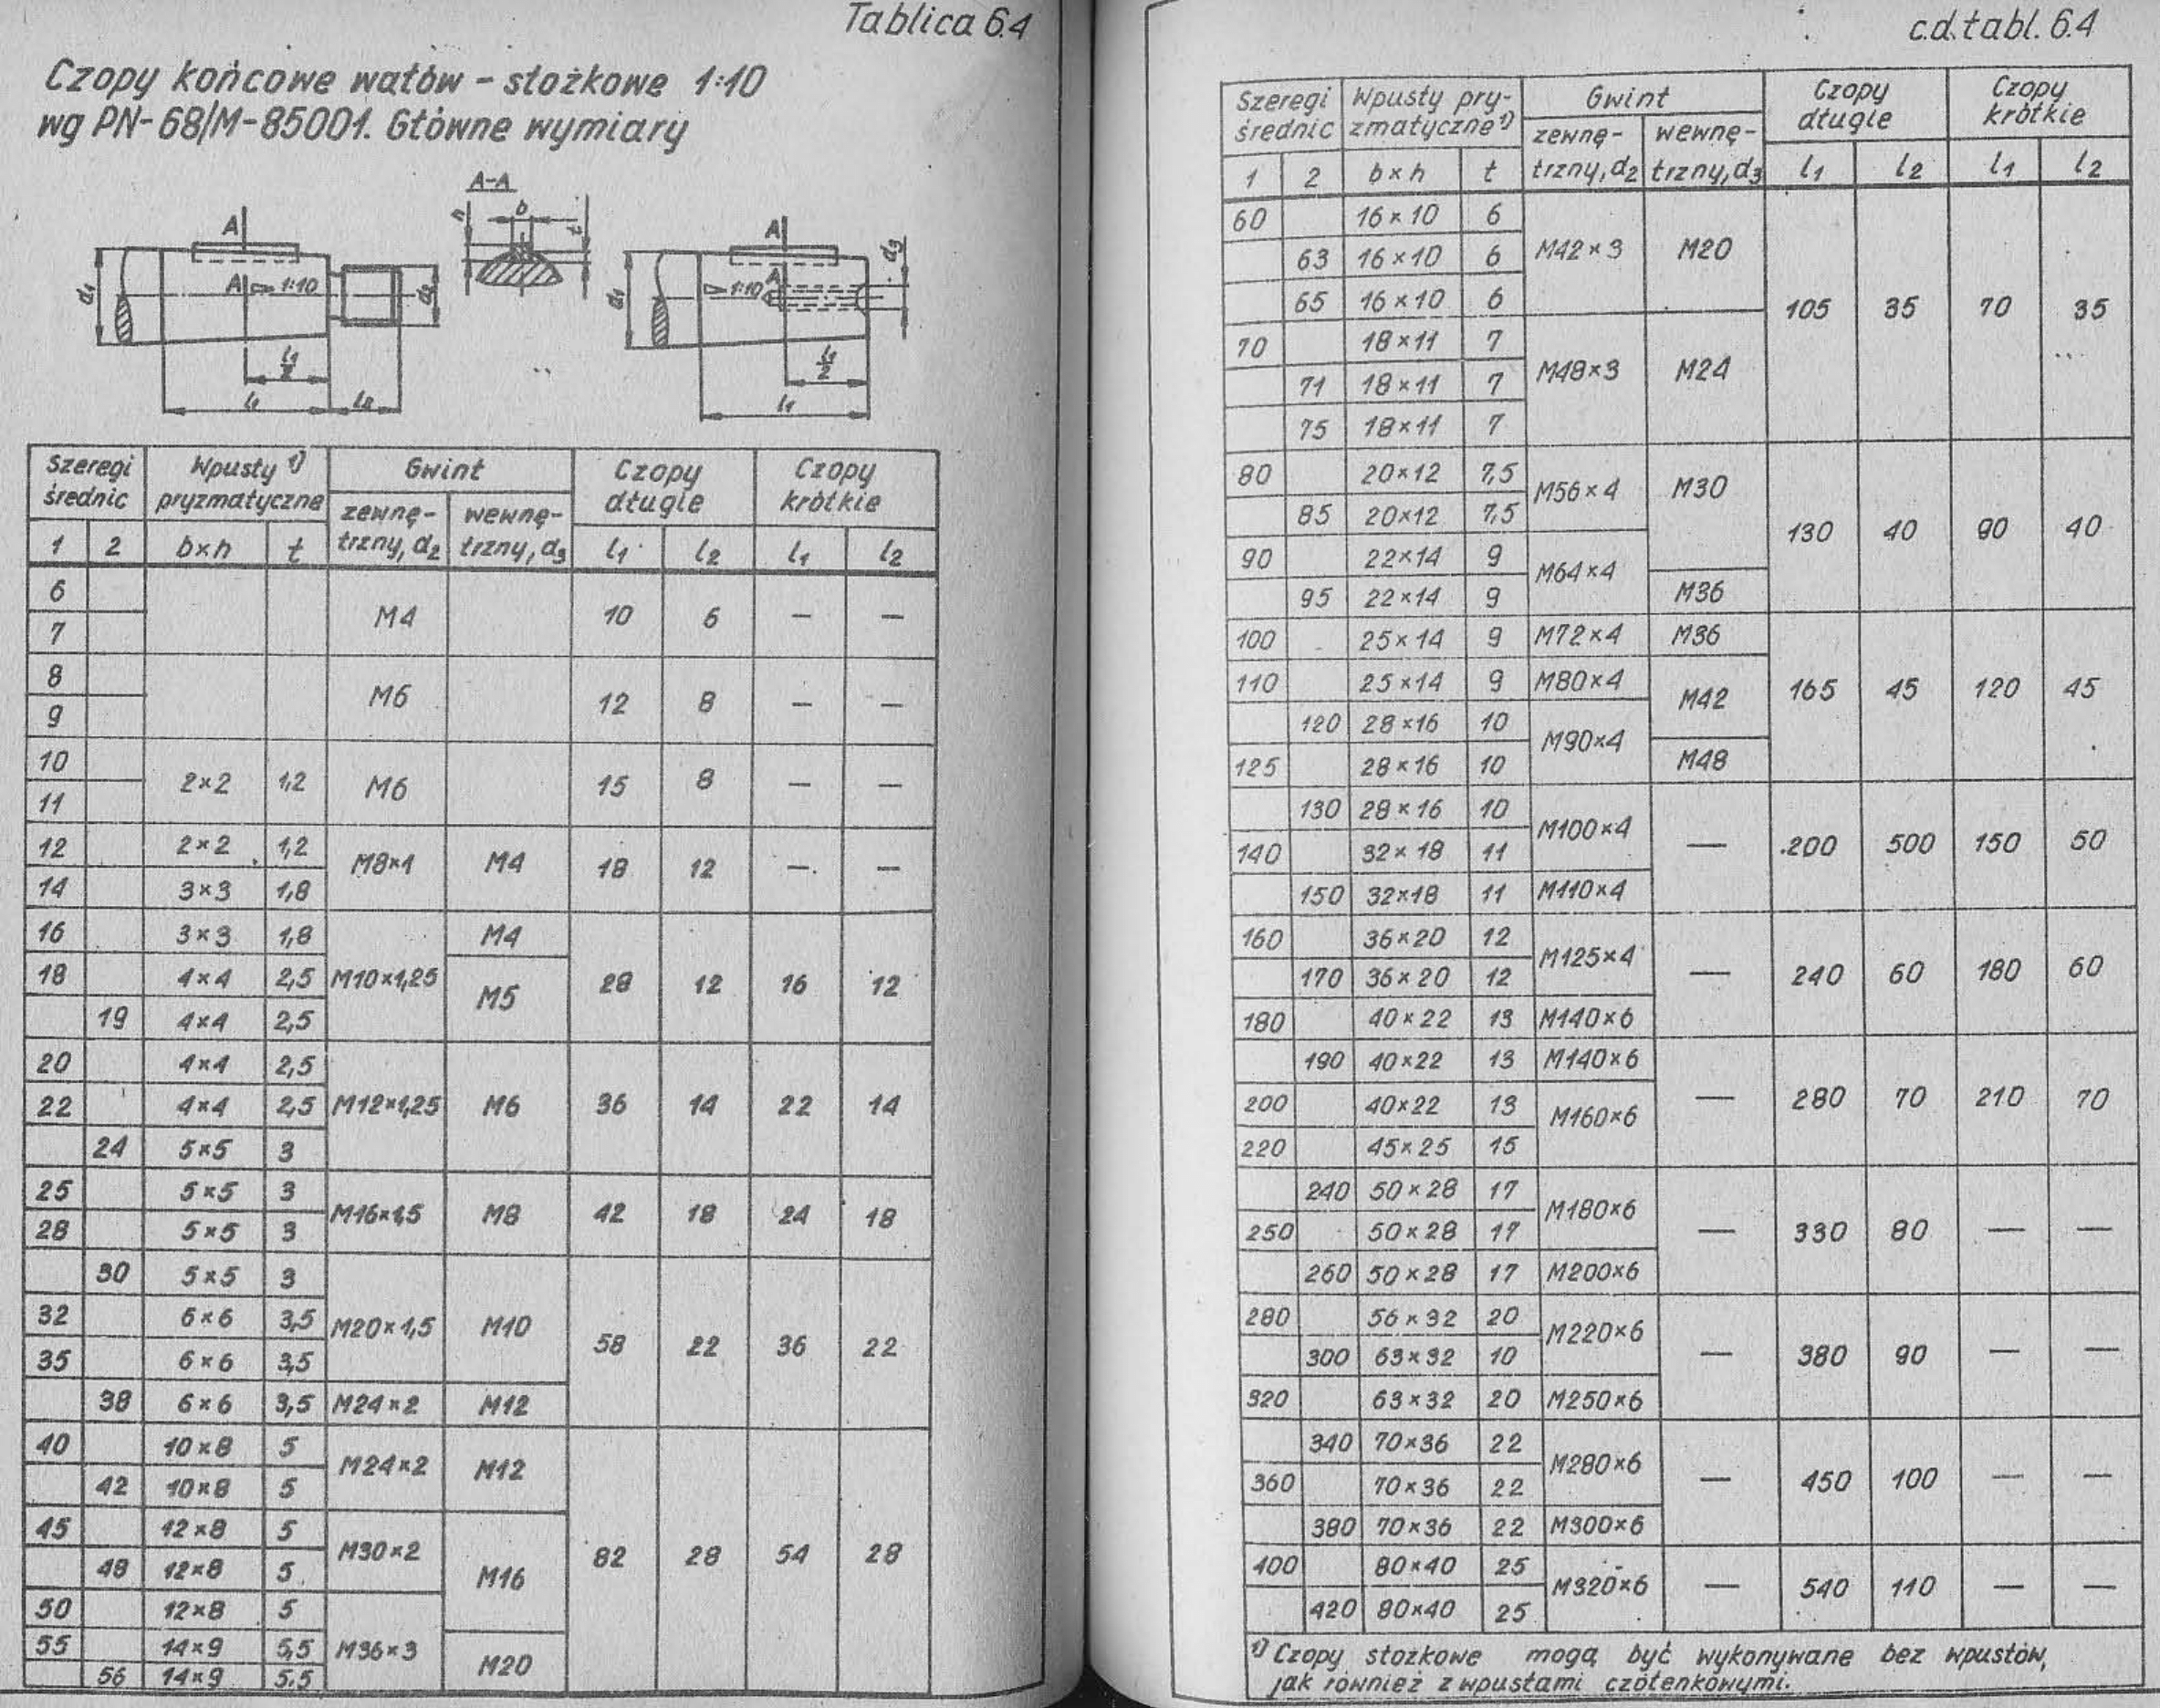 Tablica 6.4
Czopy końcowe wałów - stożkowe 1:10
wg PN-68/M-85001. Główne wymiary
A-A
A A
h b t
d₁ A ▻ 1:10 d₂ d₁ ▻ 1:10 A d₃
l₁/2 l₁/2
l₁ l₂ l₁
Szeregi średnic Wpusty ¹⁾ pryzmatyczne Gwint Czopy długie Czopy krótkie
zewnętrzny, d₂ wewnętrzny, d₃
1 2 b×h t l₁ l₂ l₁ l₂
6 M4 10 6 — —
7
8 M6 12 8 — —
9
10 2×2 1,2 M6 15 8 — —
11
12 2×2 1,2 M8×1 M4 18 12 — —
14 3×3 1,8
16 3×3 1,8 M10×1,25 M4 28 12 16 12
18 4×4 2,5 M5
19 4×4 2,5
20 4×4 2,5 M12×1,25 M6 36 14 22 14
22 4×4 2,5
24 5×5 3
25 5×5 3 M16×1,5 M8 42 18 24 18
28 5×5 3
30 5×5 3 M20×1,5 M10 58 22 36 22
32 6×6 3,5
35 6×6 3,5
38 6×6 3,5 M24×2 M12
40 10×8 5 M24×2 M12 82 28 54 28
42 10×8 5
45 12×8 5 M30×2 M16
48 12×8 5
50 12×8 5 M36×3
55 14×9 5,5 M20
56 14×9 5,5
c.d. tabl. 6.4
Szeregi średnic Wpusty pryzmatyczne ¹⁾ Gwint Czopy długie Czopy krótkie
zewnętrzny, d₂ wewnętrzny, d₃
1 2 b×h t l₁ l₂ l₁ l₂
60 16×10 6 M42×3 M20 105 35 70 35
63 16×10 6
65 16×10 6
70 18×11 7 M48×3 M24
71 18×11 7
75 18×11 7
80 20×12 7,5 M56×4 M30 130 40 90 40
85 20×12 7,5
90 22×14 9 M64×4
95 22×14 9 M36
100 25×14 9 M72×4 M36 165 45 120 45
110 25×14 9 M80×4 M42
120 28×16 10 M90×4
125 28×16 10 M48
130 28×16 10 M100×4 — 200 500 150 50
140 32×18 11
150 32×18 11 M110×4
160 36×20 12 M125×4 — 240 60 180 60
170 36×20 12
180 40×22 13 M140×6
190 40×22 13 M140×6 — 280 70 210 70
200 40×22 13 M160×6
220 45×25 15
240 50×28 17 M180×6 — 330 80 — —
250 50×28 17
260 50×28 17 M200×6
280 56×32 20 M220×6 — 380 90 — —
300 63×32 10
320 63×32 20 M250×6
340 70×36 22 M280×6 — 450 100 — —
360 70×36 22
380 70×36 22 M300×6
400 80×40 25 M320×6 — 540 110 — —
420 80×40 25
¹⁾ Czopy stożkowe mogą być wykonywane bez wpustów,
jak również z wpustami czółenkowymi.